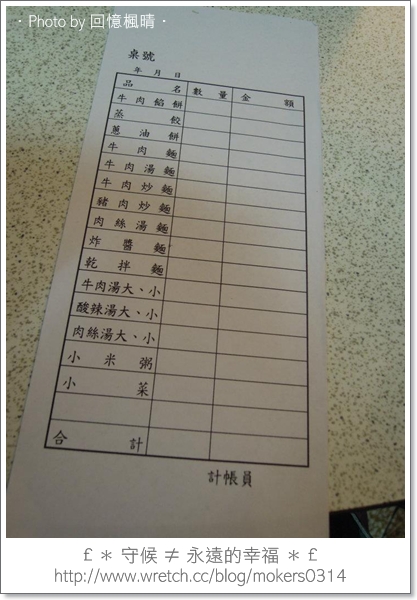 · Photo by 回憶楓晴 ·
桌號
年 月 日
品名 數量 金額
牛肉餡餅
蒸餃
蔥油餅
牛肉麵
牛肉湯麵
牛肉炒麵
豬肉炒麵
肉絲湯麵
炸醬麵
乾拌麵
牛肉湯大、小
酸辣湯大、小
肉絲湯大、小
小米粥
小菜
合計
計帳員
£ ＊ 守候 ≠ 永遠的幸福 ＊ £
http://www.wretch.cc/blog/mokers0314